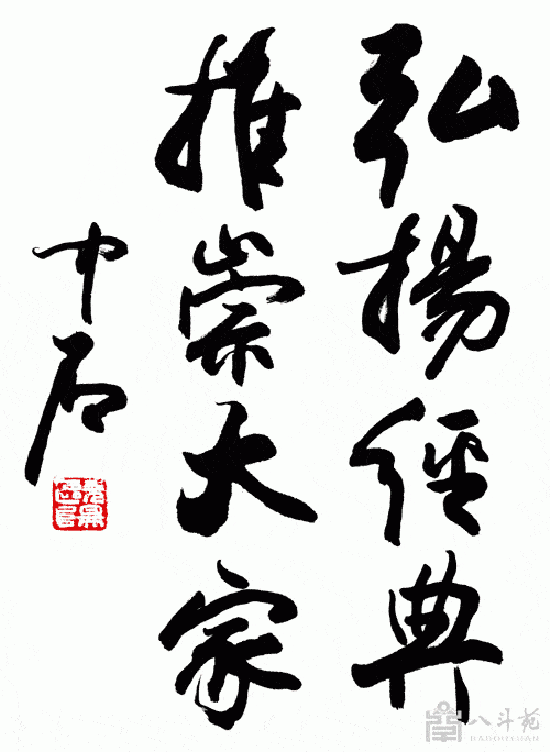 弘揚經典
推崇大家
中石
八斗苑
BADOUYUAN